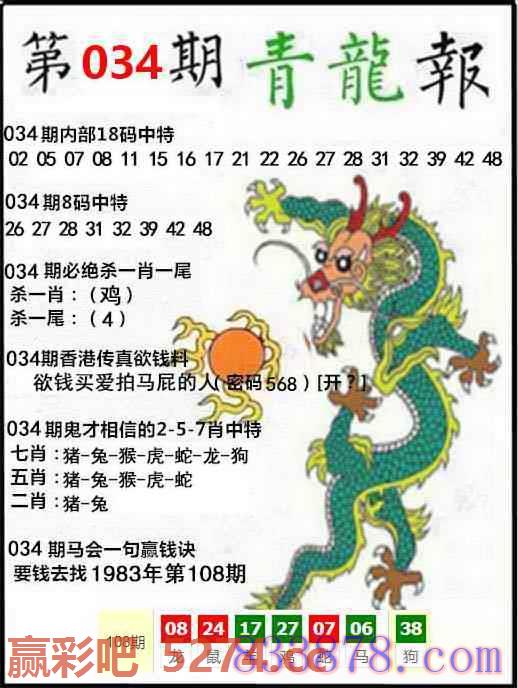 第034期 青龍報
034期内部18码中特
02 05 07 08 11 15 16 17 21 22 26 27 28 31 32 39 42 48
034期8码中特
26 27 28 31 32 39 42 48
034期必绝杀一肖一尾
杀一肖：(鸡)
杀一尾：(4)
034期香港传真欲钱料
欲钱买爱拍马屁的人(密码568)[开?]
034期鬼才相信的2-5-7肖中特
七肖：猪-兔-猴-虎-蛇-龙-狗
五肖：猪-兔-猴-虎-蛇
二肖：猪-兔
034期马会一句赢钱诀
要钱去找1983年第108期
108期 08 24 17 27 07 06 38
龙 鼠 羊 鸡 蛇 马 狗
赢彩吧